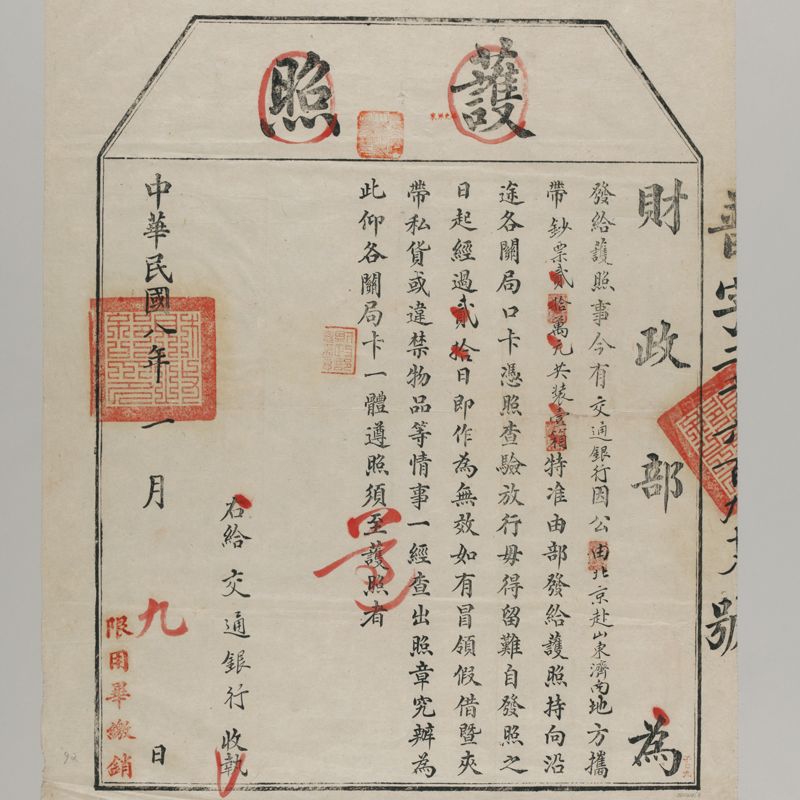 護照
財政部 為
發給護照事今有交通銀行因公由北京赴山東濟南地方攜
帶鈔票貳拾萬元共裝壹箱特准由部發給護照持向沿
途各關局口卡憑照查驗放行毋得留難自發照之
日起經過貳拾日即作為無效如有冒領假借暨夾
帶私貨或違禁物品等情事一經查出照章究辦為
此仰各關局卡一體遵照須至護照者
右給交通銀行收執
中華民國八年一月九日
限用畢繳銷